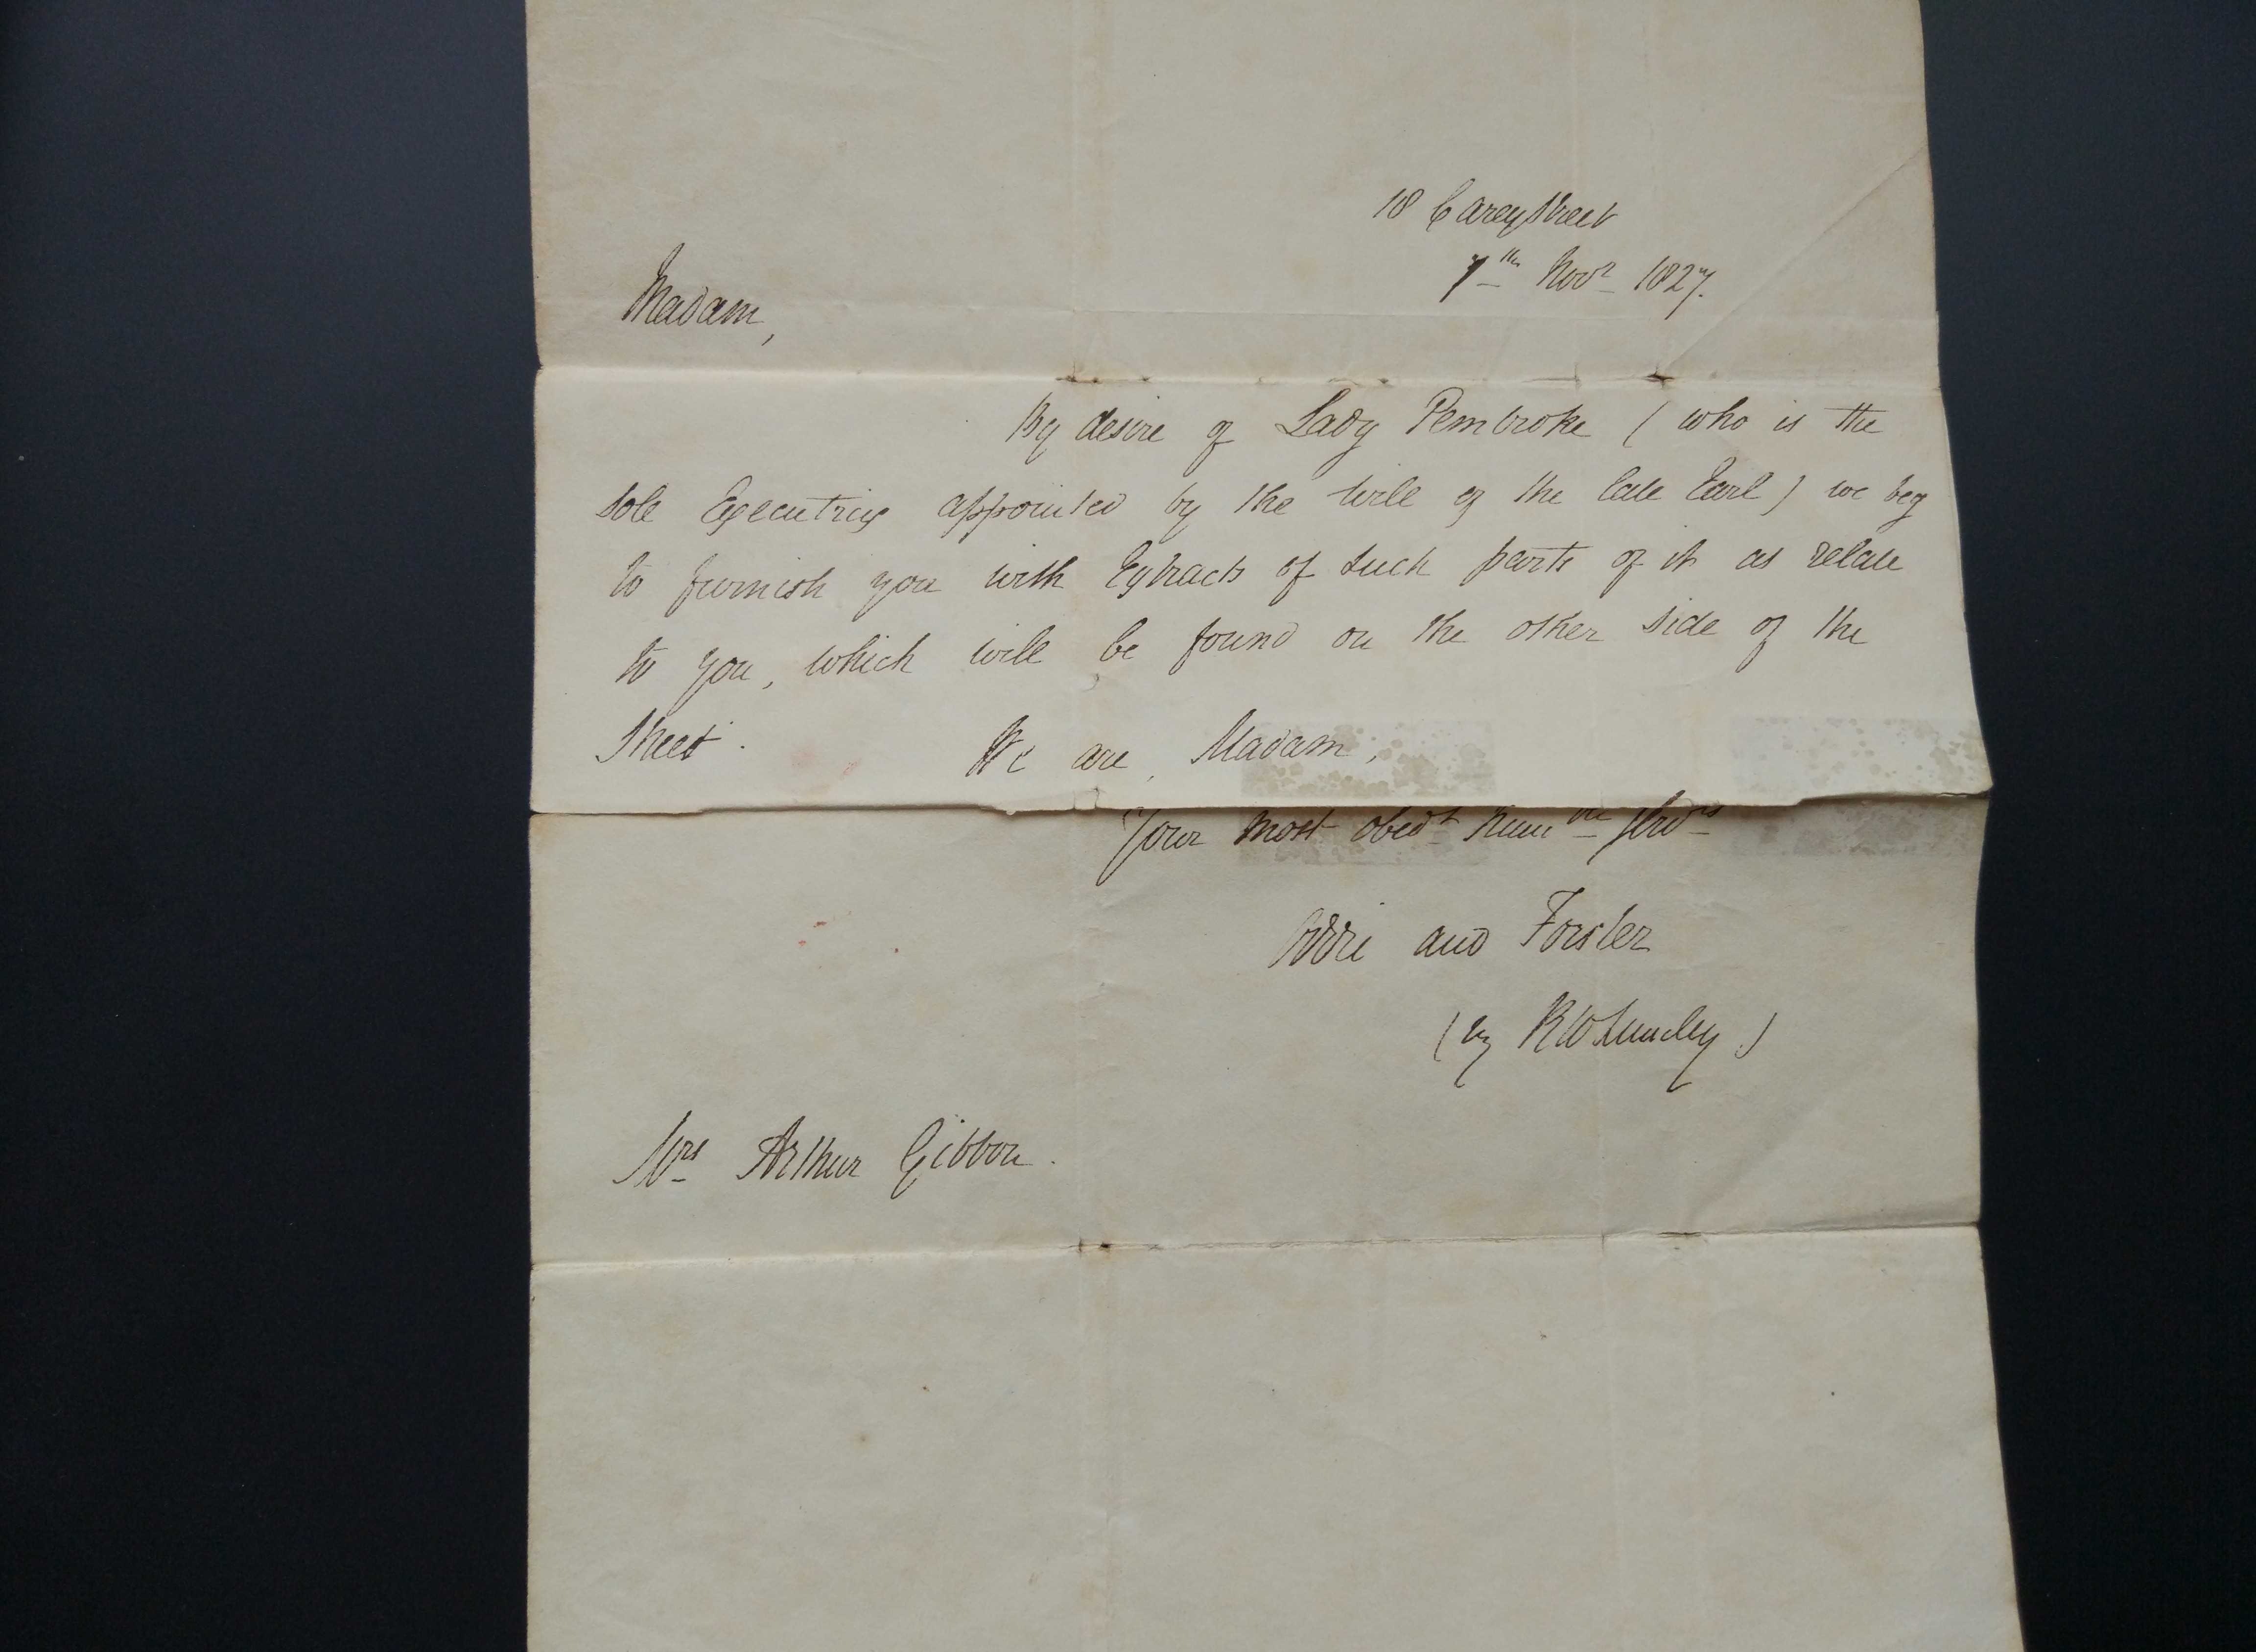 18 Carey Street
7th Novr 1827.
Madam,
By desire of Lady Pembroke (who is the
sole Executrix appointed by the Will of the late Earl) we beg
to furnish you with Extracts of such parts of it as relate
to you, which will be found on the other side of the
Sheet. We are, Madam,
Your most obedt humble Servts
Oddie and Forster
(by R W Lumley)
Mrs Arthur Gibbon.